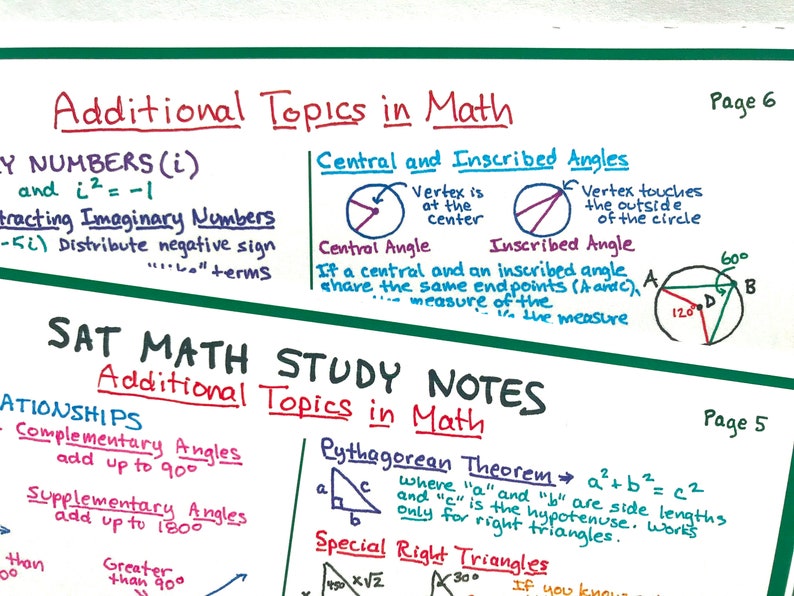 Additional Topics in Math
Page 6
NUMBERS (i)
and i² = -1
Imaginary Numbers
-5i) Distribute negative sign
terms
Central and Inscribed Angles
Vertex is
at the
center
Central Angle
Vertex touches
the outside
of the circle
Inscribed Angle
If a central and an inscribed angle
share the same endpoints (A and C),
measure of the
the measure
A
60°
B
D
120°
SAT MATH STUDY NOTES
Additional Topics in Math
Page 5
Complementary Angles
add up to 90°
Supplementary Angles
add up to 180°
than
Greater
than 90°
Pythagorean Theorem → a² + b² = c²
a
c
b
where "a" and "b" are side lengths
and "c" is the hypotenuse. Works
only for right triangles.
Special Right Triangles
45° x√2
30°
If you know